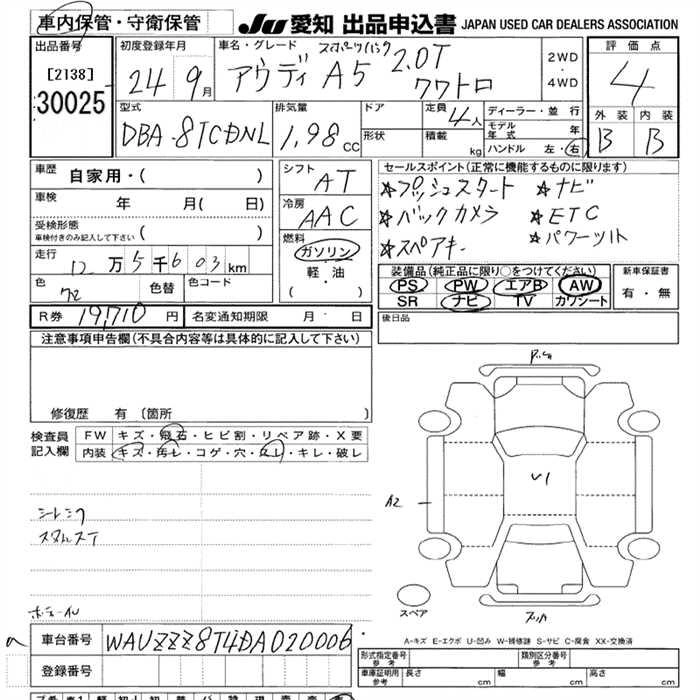 車内保管・守衛保管
JU 愛知 出品申込書 JAPAN USED CAR DEALERS ASSOCIATION
出品番号
[2138]
30025
初度登録年月
24年 9月
車名・グレード
アウディ A5 スポーツバック 2.0T クワトロ
2WD
・
4WD
評価点
4
外装 内装
B B
型式
DBA-8TCDNL
排気量
1,98 CC
ドア
形状
定員
4人
積載
kg
ディーラー・並行
モデル年式 年
ハンドル 左・右
車歴 自家用・( )
車検 年 月( 日)
受検形態
車検付きのみ記入して下さい ( )
走行 12万5千603km
色 クロ 色替 色コード
R券 19,710円 名変通知期限 月 日
シフト
AT
冷房
AAC
燃料
ガソリン
軽・油
( ・ )
セールスポイント(正常に機能するものに限ります)
☆プッシュスタート ☆ナビ
☆バックカメラ ☆ETC
☆スペアキー ☆パワーシート
装備品(純正品に限り○をつけてください)
PS PW エアB AW
SR ナビ TV カワシート
新車保証書
有・無
後日品
注意事項申告欄(不具合内容等は具体的に記入して下さい)
修復歴 有〔箇所 〕
検査員
記入欄
FW キズ・飛石・ヒビ割・リペア跡・X要
内装 キズ・汚レ・コゲ・穴・スレ・キレ・破レ
A2
スペア
A-キズ E-エクボ U-凹み W-補修跡 S-サビ C-腐食 XX-交換済
車台番号 WAUZZZ8T4DA020006
登録番号
形式指定番号
参考
類別区分番号
参考
車庫証明用
参考
長さ cm 幅 cm 高さ cm